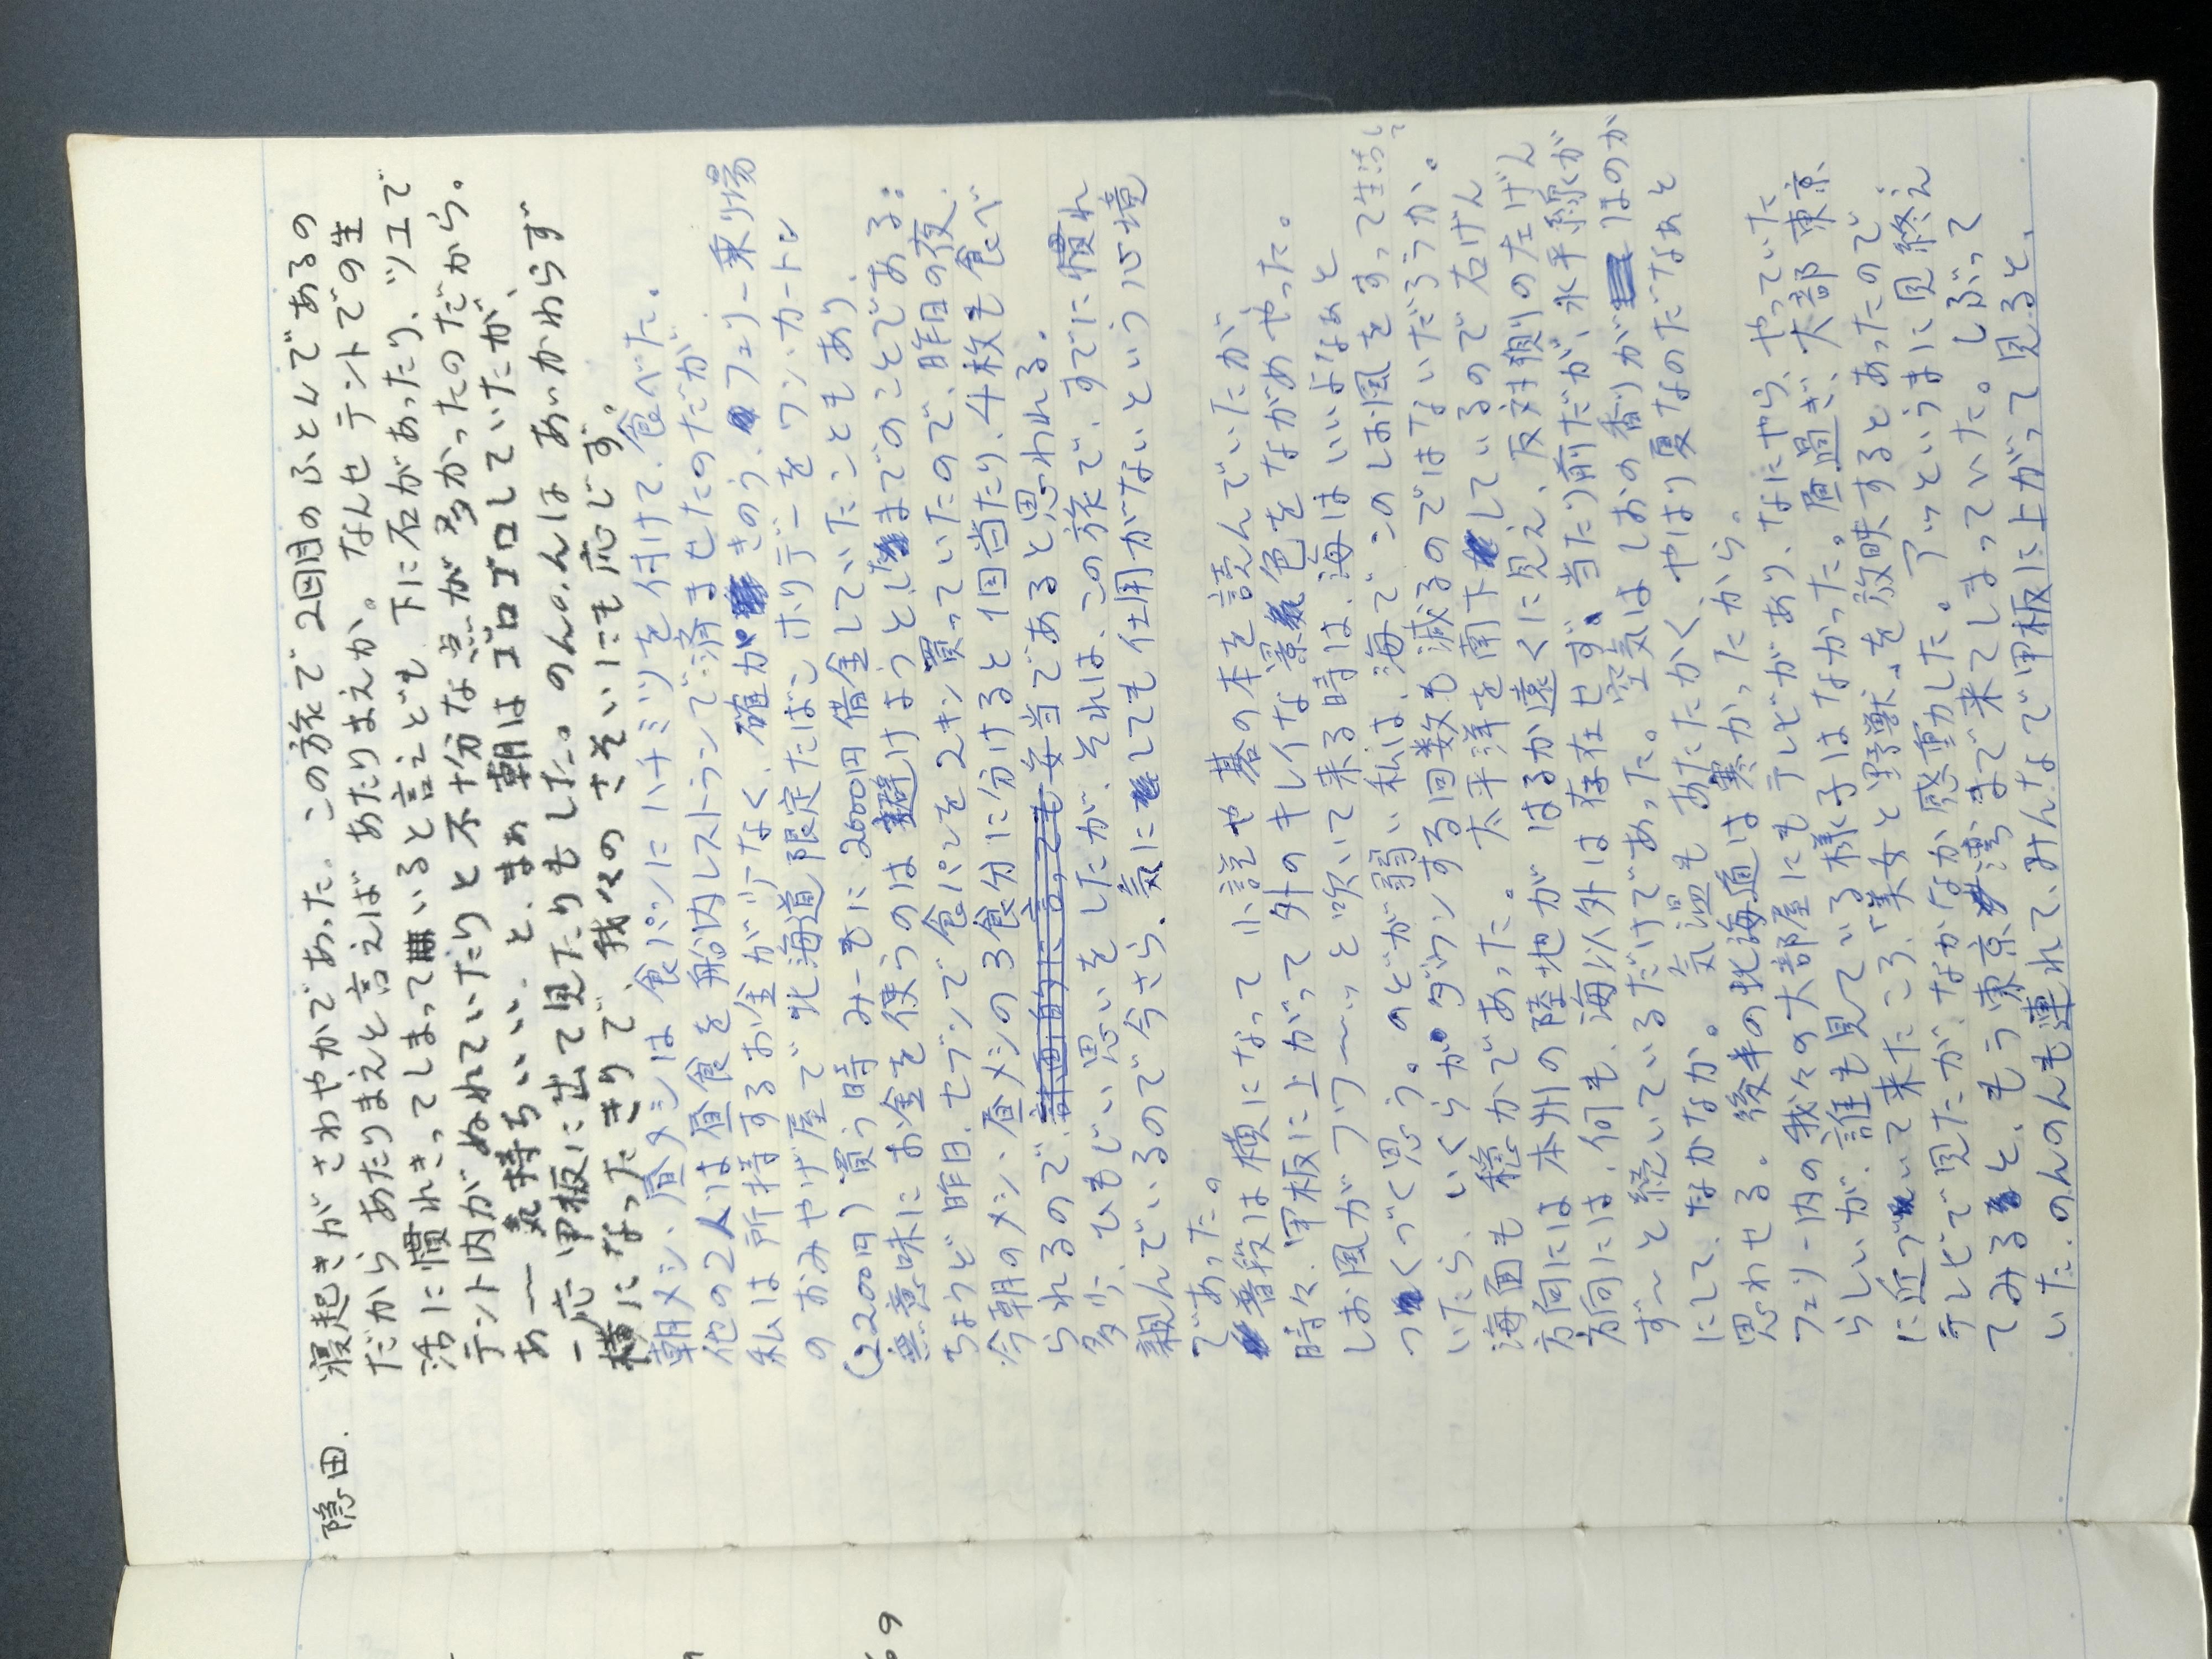 隠田. 寝起きがさわやかであった。この旅で2回目のふとんであるの
だからあたりまえと言えばあたりまえか。なんせテントでの生
活に慣れきってしまっていると言えども、下に石があったり、ツユで
テント内がぬれていたりと不十分な点が多かったのだから。
あ〜 気持ちいい。と、まあ朝はゴロゴロしていたが、
一応甲板に出て見たりもした。のんのんはあいかわらず
横になったきりで、我々のさそいにも応じず。
朝メシ、昼メシは食パンにハチミツを付けて、食べた。
他の2人は昼食を船内レストランで済ませたのだが
私は所持するお金が少なく、確か きのう、フェリー乗り場
のおみやげ屋で北海道限定たばこホリデーをワン・カートン
(2200円)買う時みーもに2000円借金していたこともあり、
無意味にお金を使うのは避けようとしたまでのことである。
ちょうど昨日、セブンで食パンを2キン買っていたので、昨日の夜、
今朝のメシ、昼メシの3食分に分けると1回当たり、4枚も食べ
られるので、計画的に言っても妥当であると思われる。
多少、ひもじい思いをしたが、それは、この旅で、すでに慣れ
親んでいるので今さら、気にしても仕用がないという心境
であった。
普段は横になって小説や碁の本を読んでいたが、
時々、甲板に上がって外のキレイな景色をながめやった。
しお風がフワ〜ッと吹いて来る時は、海はいいよなあと
つくづく思う。のどが弱い私は、海でこのしお風をすって生活して
いたら、いくらかダウンする回数も減るのではないだろうか。
海面も穏かであった。太平洋を南下しているので右げん
方向には本州の陸地がはるか遠くに見え、反対側の左げん
方向には、何も、海以外は存在せず。当たり前だが、水平線が
ず〜と続いているだけであった。空気はしおの香りがほのか
にして、なかなか。気温もあたたかくやはり夏なのだなあと
思わせる。後半の北海道は寒かったから。
フェリー内の我々の大部屋にもテレビがあり、なにやら、やっていた
らしいが、誰も見ている様子はなかった。昼過ぎ、大部東京
に近づいて来たころ、「美女と野獣」を放映するとあったので
テレビで見たが、なかなか感動した。アッというまに見終え
てみると、もう東京湾まで来てしまっていた。しぶって
いた、のんのんも連れて、みんなで甲板に上がって見ると、
69